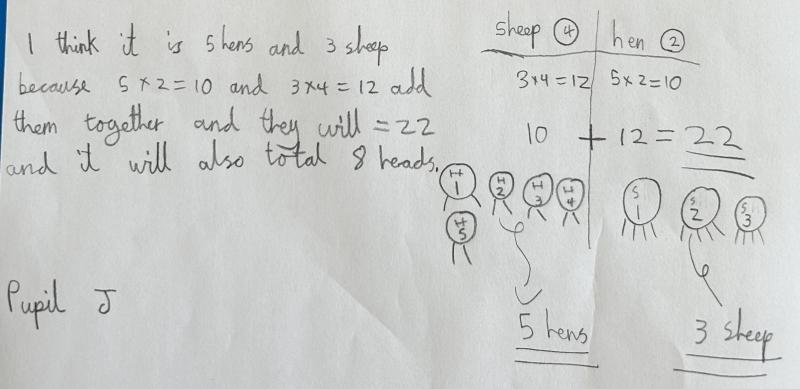 I think it is 5 hens and 3 sheep
because 5 × 2 = 10 and 3×4 = 12 add
them together and they will = 22
and it will also total 8 heads.
Pupil J
sheep ④ hen ②
3×4 = 12 5×2 = 10
10 + 12 = 22
H 1 H 2 H 3 H 4 S 1 S 2 S 3
H 5
5 hens 3 sheep